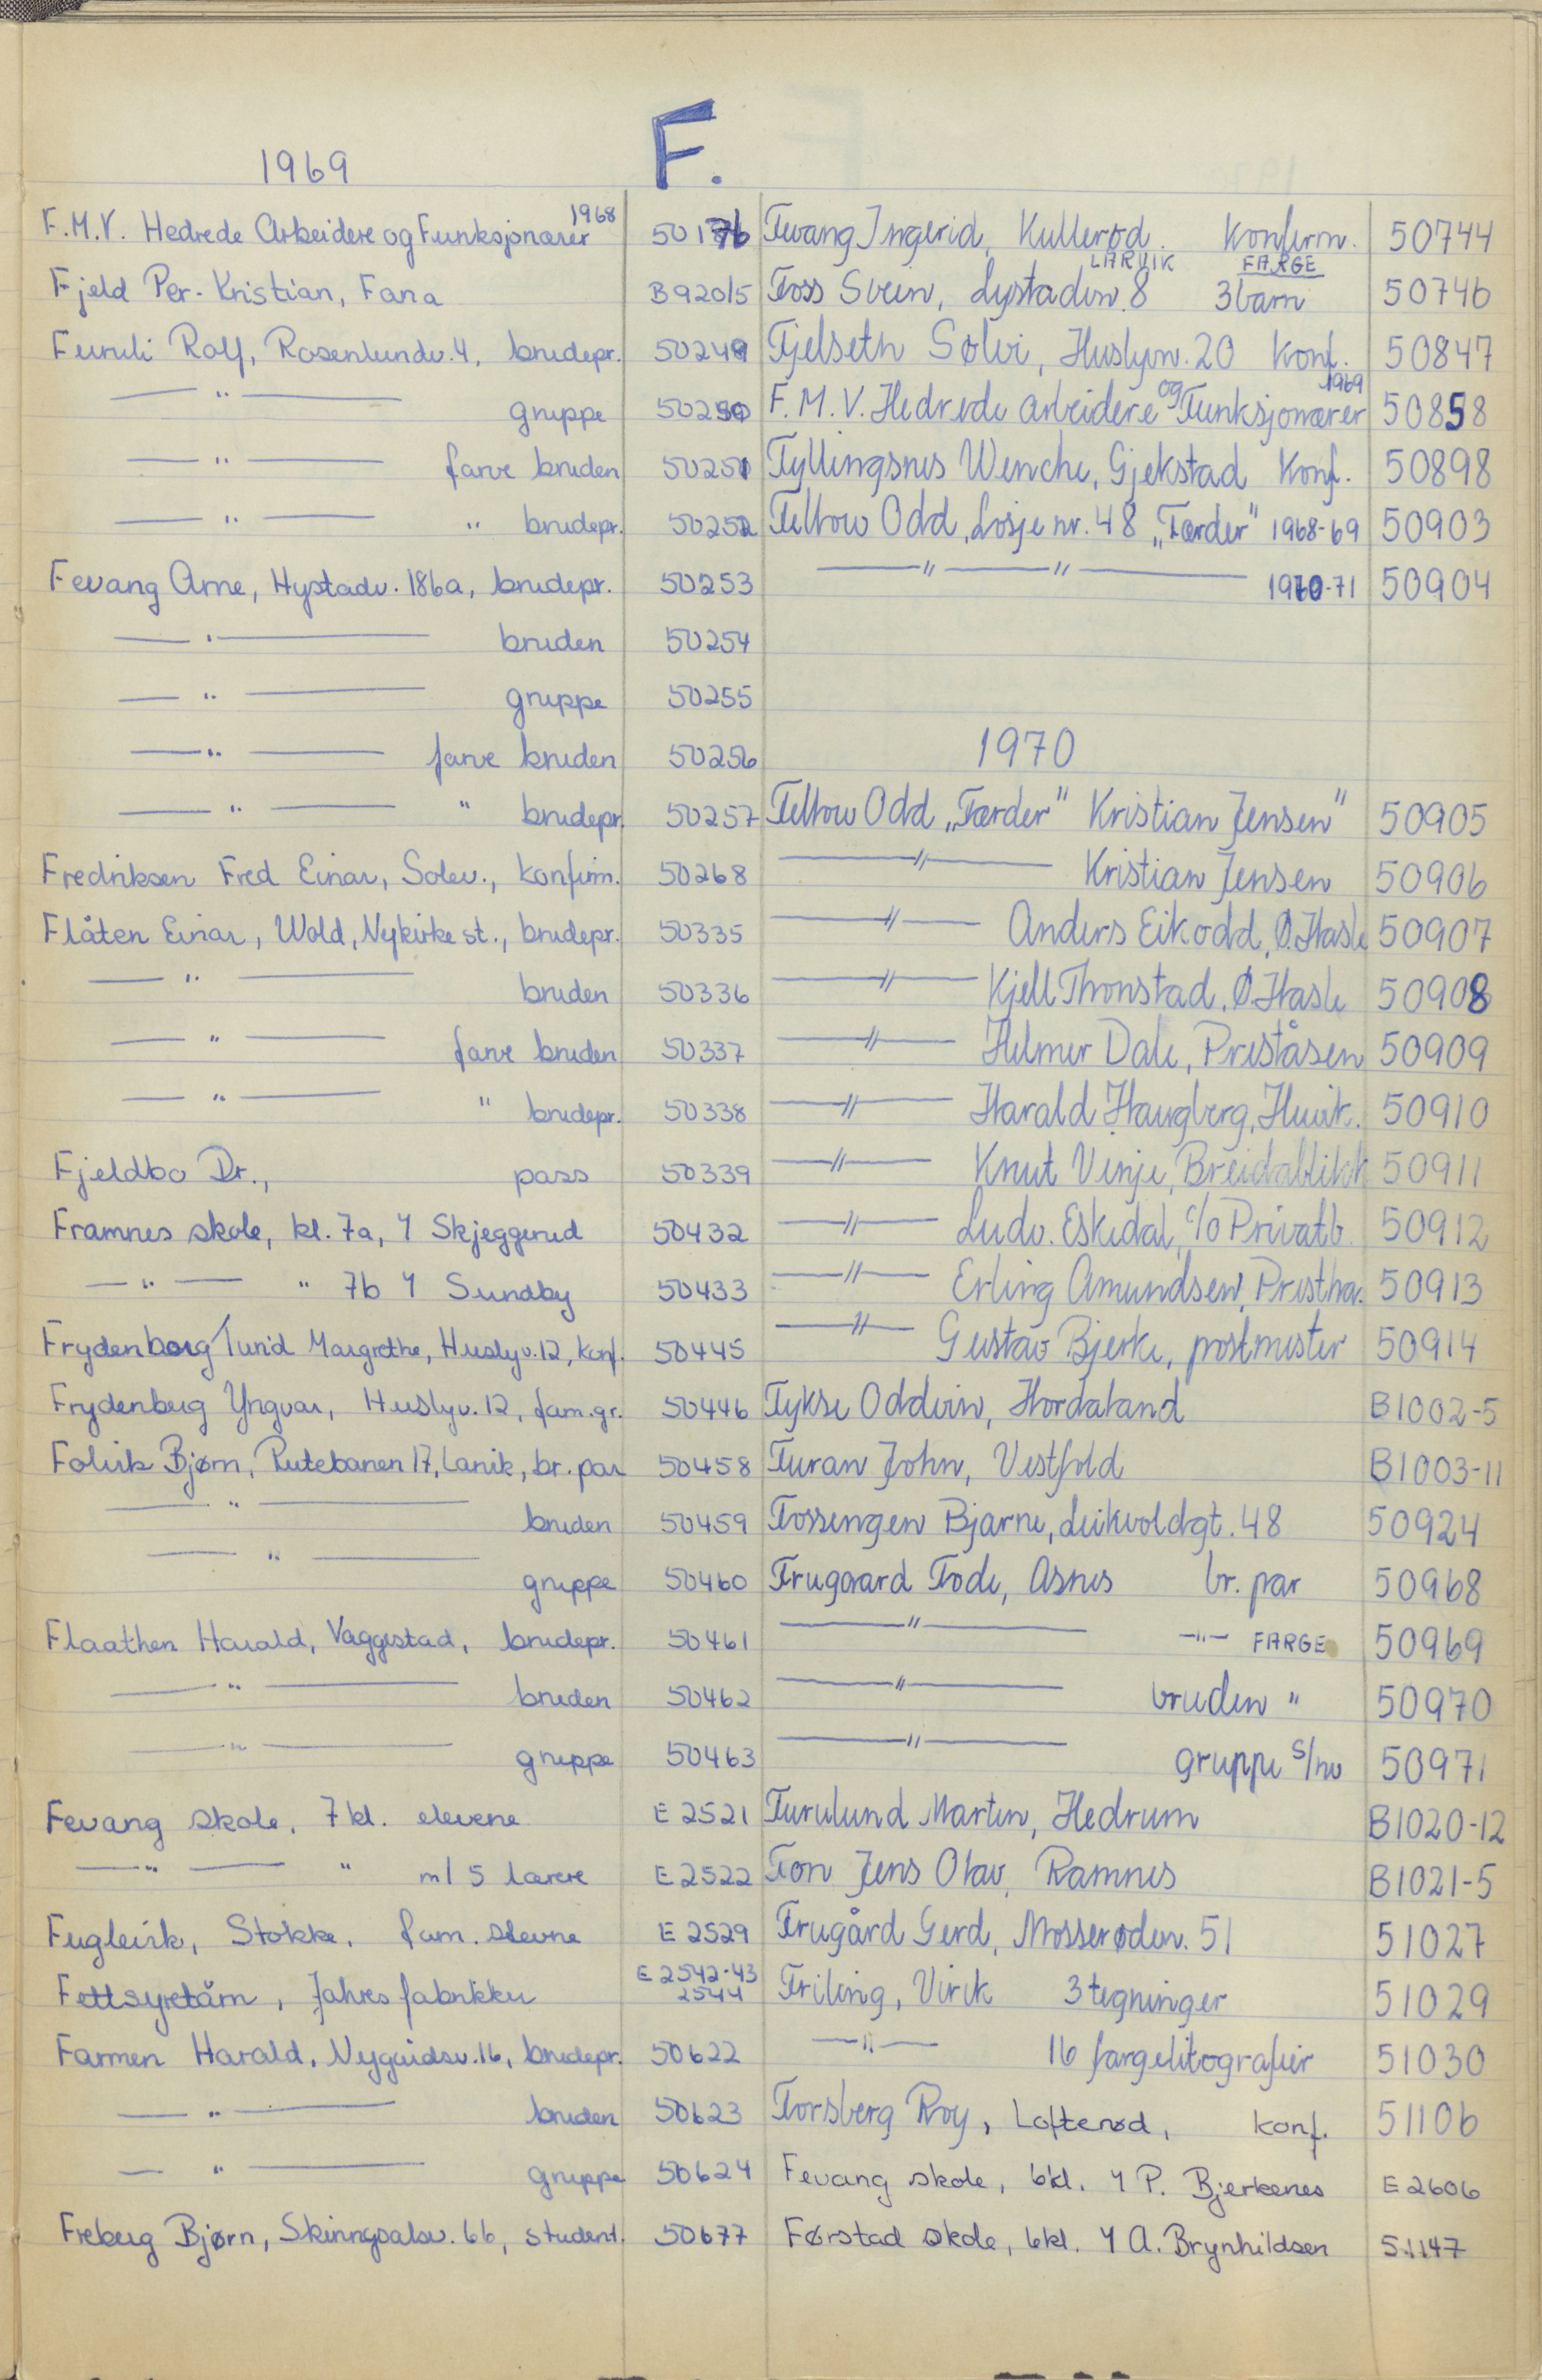 F.
1969
F.M.V. Hedrede Arbeidere og Funksjonærer 1968 50176
Fjeld Per-Kristian, Fana B92015
Furuli Rolf, Rosenlundv. 4, brudepr. 50249
— " — gruppe 50250
— " — farve bruden 50251
— " — " brudepr. 50252
Fevang Arne, Hystadv. 186a, brudepr. 50253
— " — bruden 50254
— " — gruppe 50255
— " — farve bruden 50256
— " — " brudepr. 50257
Fredriksen Fred Einar, Solev., konfirm. 50268
Flåten Einar, Wold, Nykirke st., brudepr. 50335
— " — bruden 50336
— " — farve bruden 50337
— " — " brudepr. 50338
Fjeldbo Dr., pass 50339
Framnes skole, kl. 7a, Y Skjeggerud 50432
— " — " 7b Y Sundby 50433
Frydenborg Turid Margrethe, Huslyv. 12, konf. 50445
Frydenberg Yngvar, Huslyv. 12, fam.gr. 50446
Folvik Bjørn, Rutebanen 17, Larvik, br. par 50458
— " — bruden 50459
— " — gruppe 50460
Flaathen Harald, Vaggestad, brudepr. 50461
— " — bruden 50462
— " — gruppe 50463
Fevang skole, 7 kl. elevene E 2521
— " — " m/ 5 lærere E 2522
Fuglevik, Stokke, fam. stevne E 2529
Fettsyretårn, Jahres fabrikker E 2542-43 2544
Farmen Harald, Nygårdsv. 16, brudepr. 50622
— " — bruden 50623
— " — gruppe 50624
Freberg Bjørn, Skiringsalsv. 66, student. 50677
Fevang Ingerid, Kullerød. Konfirm. 50744
Foss Svein, Lystadv. 8 LARVIK 3 barn FARGE 50746
Fjelseth Sølvi, Huslyv. 20 Konf. 50847
F.M.V. Hedrede arbeidere og Funksjonærer 1969 50858
Fyllingsnes Wenche, Gjekstad Konf. 50898
Feltow Odd, Losje nr. 48 „Færder" 1968-69 50903
— " — " — 1970-71 50904
1970
Feltow Odd „Færder" Kristian Jensen" 50905
— " — Kristian Jensen 50906
— " — Anders Eikodd, Ø. Hasle 50907
— " — Kjell Thronstad. Ø. Hasle 50908
— " — Helmer Dale, Preståsen 50909
— " — Harald Haugberg, Huvik. 50910
— " — Knut Vinje, Breidablikk 50911
— " — Ludv. Eskedal, c/o Privatb. 50912
— " — Erling Amundsen, Prestha. 50913
— " — Gustav Bjerke, postmester 50914
Fykse Oddvin, Hordaland B1002-5
Furan John, Vestfold B1003-11
Fossengen Bjarne, Leikvoldgt. 48 50924
Frugaard Frode, Åsnes br. par 50968
— " — — " — FARGE 50969
— " — bruden " 50970
— " — gruppe s/hv 50971
Furulund Marten, Hedrum B1020-12
Fon Jens Olav, Ramnes B1021-5
Frugård Gerd, Mosserødv. 51 51027
Friling, Virik 3 tegninger 51029
— " — 16 fargelitografier 51030
Forsberg Roy, Lofterød, konf. 51106
Fevang skole, 6kl. Y P. Bjerkenes E 2606
Førstad skole, 6kl. Y A. Brynhildsen 51147